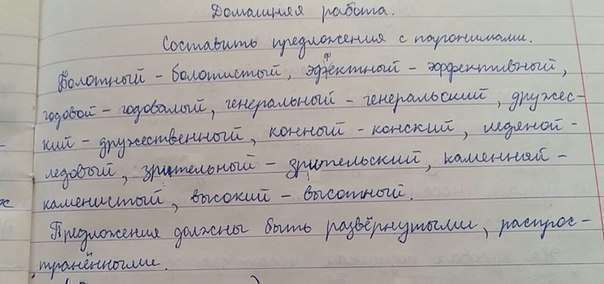 Домашняя работа.
Составить предложения с паронимами.
Болотный – болотистый, эффектный – эффективный,
годовой – годовалый, генеральный – генеральский, дружес-
кий – дружественный, конный – конский, ледяной –
ледовый, зрительный – зрительский, каменный –
каменистый, высокий – высотный.
Предложения должны быть развёрнутыми, распрос-
транёнными.